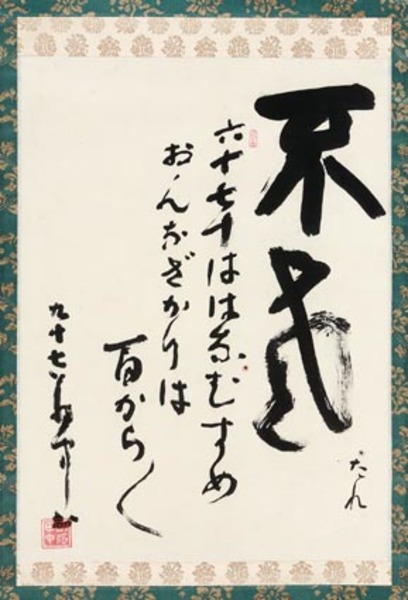 不老
六十七十ははなむすめ
だれ
おんなざかりは
百から〱
九十七